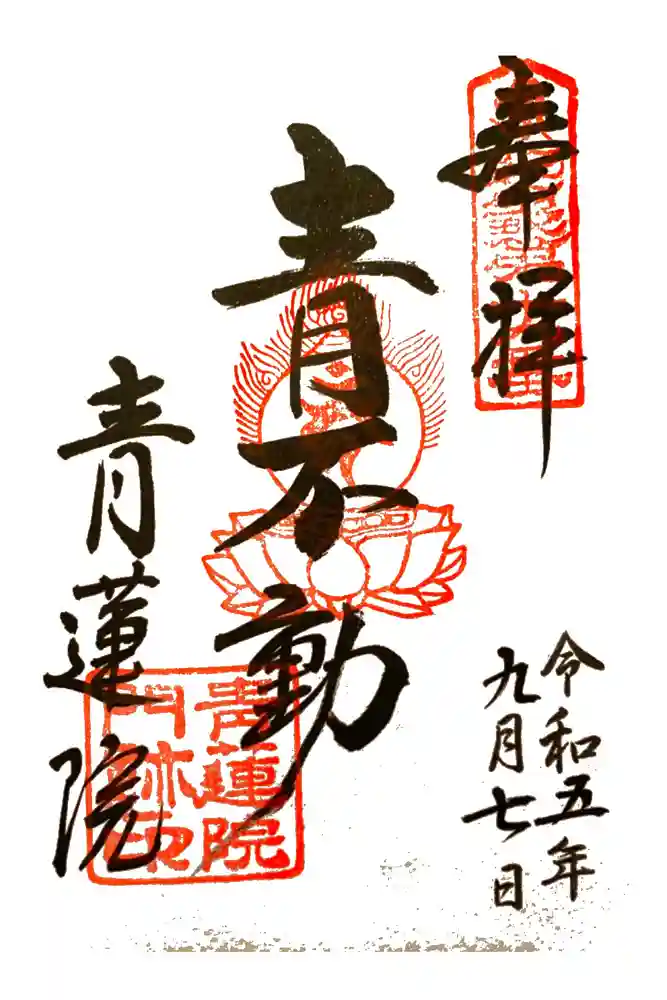 奉拝
令和五年
九月七日
青不動
青蓮院
青蓮院
門跡印